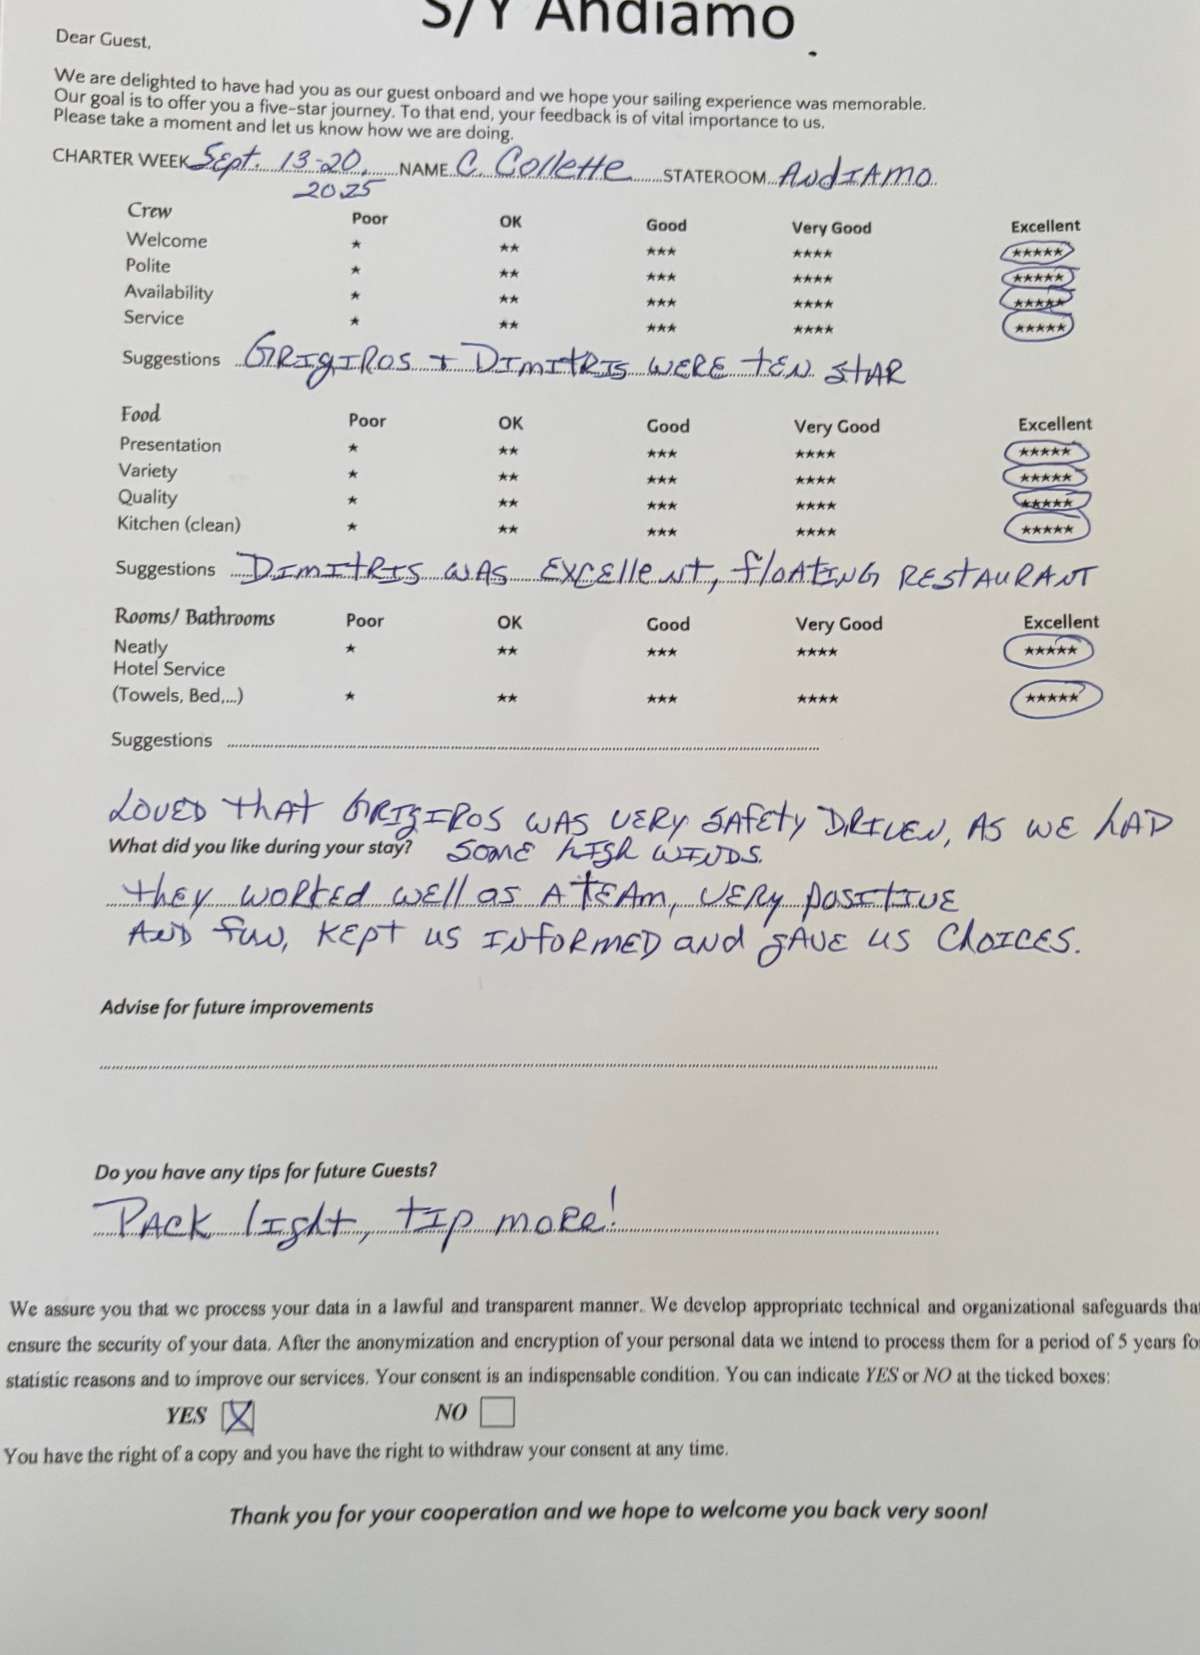 S/Y Andiamo
Dear Guest,
We are delighted to have had you as our guest onboard and we hope your sailing experience was memorable.
Our goal is to offer you a five-star journey. To that end, your feedback is of vital importance to us.
Please take a moment and let us know how we are doing.
CHARTER WEEK Sept. 13-20, NAME C. Collette STATEROOM ANDIAMO
2025
Crew Poor OK Good Very Good Excellent
Welcome ★ ★★ ★★★ ★★★★ ★★★★★
Polite ★ ★★ ★★★ ★★★★ ★★★★★
Availability ★ ★★ ★★★ ★★★★ ★★★★★
Service ★ ★★ ★★★ ★★★★ ★★★★★
Suggestions GRIGIROS + DIMITRIS WERE TEN STAR
Food Poor OK Good Very Good Excellent
Presentation ★ ★★ ★★★ ★★★★ ★★★★★
Variety ★ ★★ ★★★ ★★★★ ★★★★★
Quality ★ ★★ ★★★ ★★★★ ★★★★★
Kitchen (clean) ★ ★★ ★★★ ★★★★ ★★★★★
Suggestions DIMITRIS WAS EXCEllENT, floATING RESTAURANT
Rooms/ Bathrooms Poor OK Good Very Good Excellent
Neatly ★ ★★ ★★★ ★★★★ ★★★★★
Hotel Service
(Towels, Bed,...) ★ ★★ ★★★ ★★★★ ★★★★★
Suggestions
LOVED thAT GRIGIROS WAS VERY SAfEty DRIVEN, AS WE hAD
What did you like during your stay? SOME hIGh WINDS.
they WORKED WEll as A TEAm, VERy positIVE
AND fuN, KEpt us INfoRMED and gAVE us ChoICES.
Advise for future improvements
Do you have any tips for future Guests?
PACK lIght, tIp moRe!
We assure you that we process your data in a lawful and transparent manner. We develop appropriate technical and organizational safeguards that
ensure the security of your data. After the anonymization and encryption of your personal data we intend to process them for a period of 5 years for
statistic reasons and to improve our services. Your consent is an indispensable condition. You can indicate YES or NO at the ticked boxes:
YES X NO
You have the right of a copy and you have the right to withdraw your consent at any time.
Thank you for your cooperation and we hope to welcome you back very soon!